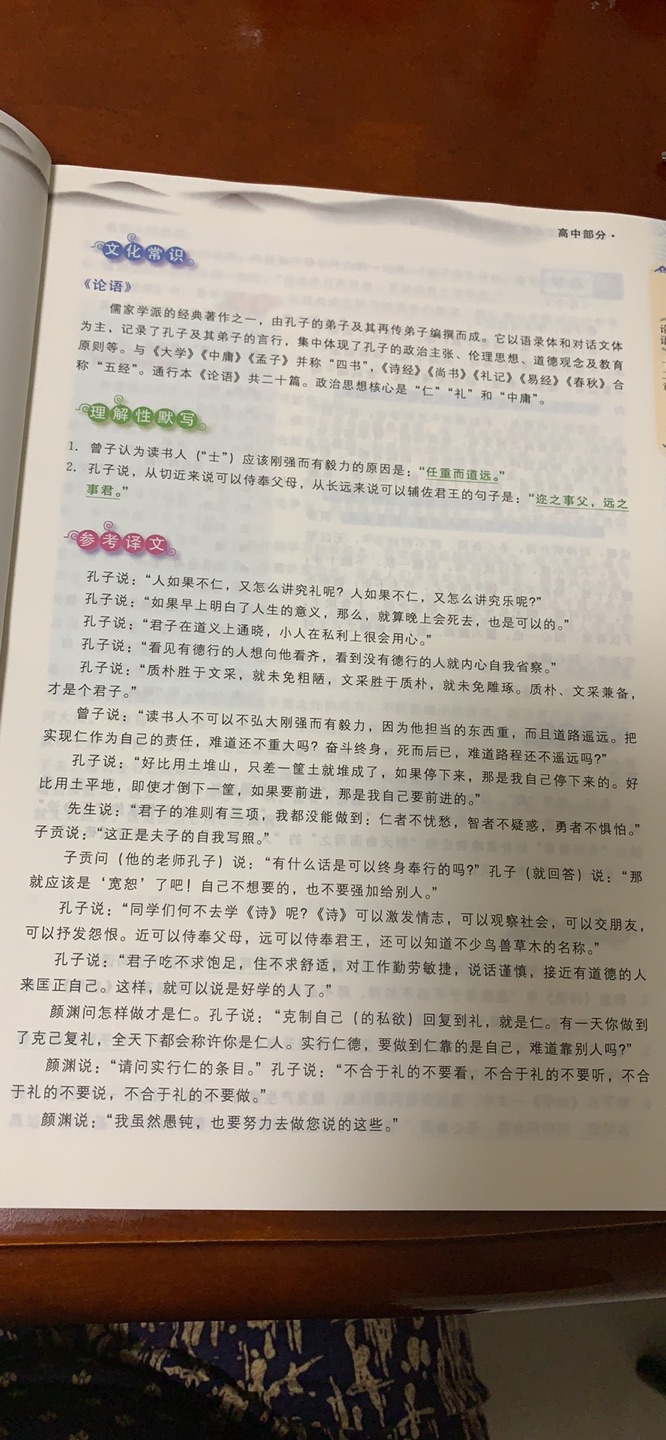 高中部分·
文化常识
《论语》
儒家学派的经典著作之一，由孔子的弟子及其再传弟子编撰而成。它以语录体和对话文体
为主，记录了孔子及其弟子的言行，集中体现了孔子的政治主张、伦理思想、道德观念及教育
原则等。与《大学》《中庸》《孟子》并称“四书”，《诗经》《尚书》《礼记》《易经》《春秋》合
称“五经”。通行本《论语》共二十篇。政治思想核心是“仁”“礼”和“中庸”。
理解性默写
1. 曾子认为读书人（“士”）应该刚强而有毅力的原因是：“任重而道远。”
2. 孔子说，从切近来说可以侍奉父母，从长远来说可以辅佐君王的句子是：“迩之事父，远之
事君。”
参考译文
孔子说：“人如果不仁，又怎么讲究礼呢？人如果不仁，又怎么讲究乐呢？”
孔子说：“如果早上明白了人生的意义，那么，就算晚上会死去，也是可以的。”
孔子说：“君子在道义上通晓，小人在私利上很会用心。”
孔子说：“看见有德行的人想向他看齐，看到没有德行的人就内心自我省察。”
孔子说：“质朴胜于文采，就未免粗陋，文采胜于质朴，就未免雕琢。质朴、文采兼备，
才是个君子。”
曾子说：“读书人不可以不弘大刚强而有毅力，因为他担当的东西重，而且道路遥远。把
实现仁作为自己的责任，难道还不重大吗？奋斗终身，死而后已，难道路程还不遥远吗？”
孔子说：“好比用土堆山，只差一筐土就堆成了，如果停下来，那是我自己停下来的。好
比用土平地，即使才倒下一筐，如果要前进，那是我自己要前进的。”
先生说：“君子的准则有三项，我都没能做到：仁者不忧愁，智者不疑惑，勇者不惧怕。”
子贡说：“这正是夫子的自我写照。”
子贡问（他的老师孔子）说：“有什么话是可以终身奉行的吗？”孔子（就回答）说：“那
就应该是‘宽恕’了吧！自己不想要的，也不要强加给别人。”
孔子说：“同学们何不去学《诗》呢？《诗》可以激发情志，可以观察社会，可以交朋友，
可以抒发怨恨。近可以侍奉父母，远可以侍奉君王，还可以知道不少鸟兽草木的名称。”
孔子说：“君子吃不求饱足，住不求舒适，对工作勤劳敏捷，说话谨慎，接近有道德的人
来匡正自己。这样，就可以说是好学的人了。”
颜渊问怎样做才是仁。孔子说：“克制自己（的私欲）回复到礼，就是仁。有一天你做到
了克己复礼，全天下都会称许你是仁人。实行仁德，要做到仁靠的是自己，难道靠别人吗？”
颜渊说：“请问实行仁的条目。”孔子说：“不合于礼的不要看，不合于礼的不要听，不合
于礼的不要说，不合于礼的不要做。”
颜渊说：“我虽然愚钝，也要努力去做您说的这些。”